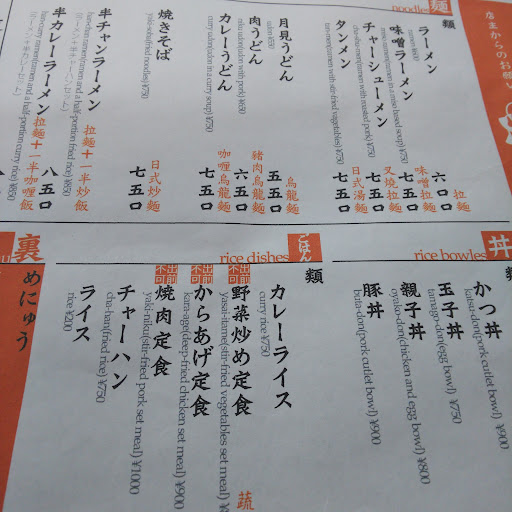 店主からのお願い
noodles 麺類
ラーメン
ramen ¥600
拉麺
六〇〇
味噌ラーメン
味噌拉麺
七五〇
チャーシューメン
叉焼拉麺
七五〇
タンメン
日式湯麺
七五〇
月見うどん
烏龍麺
五五〇
肉うどん
猪肉烏龍麺
六五〇
カレーうどん
curry udon(udon in a curry soup) ¥750
咖喱烏龍麺
七五〇
焼きそば
yaki-soba(fried noodles) ¥750
日式炒麺
七五〇
半チャンラーメン
(ラーメンと半チャーハンのセット)
拉麺+一半炒飯
半カレーラーメン
(ラーメンと半カレーのセット)
拉麺+一半咖喱飯
八五〇
rice bowles 丼
かつ丼
katsu-don(pork cutlet bowl) ¥900
玉子丼
tamago-don(egg bowl) ¥750
親子丼
oyako-don(chicken and egg bowl) ¥800
豚丼
buta-don(pork cutlet bowl) ¥900
rice dishes ごはん類
カレーライス
curry rice ¥750
出前不可
野菜炒め定食
yasai-itame(stir-fried vegetables set meal)
蔬
出前不可
からあげ定食
kara-age(deep-fried chicken set meal) ¥900
出前不可
焼肉定食
yaki-niku(stir-fried pork set meal) ¥1000
チャーハン
cha-han(fried rice) ¥750
ライス
rice ¥200
裏めにゅう